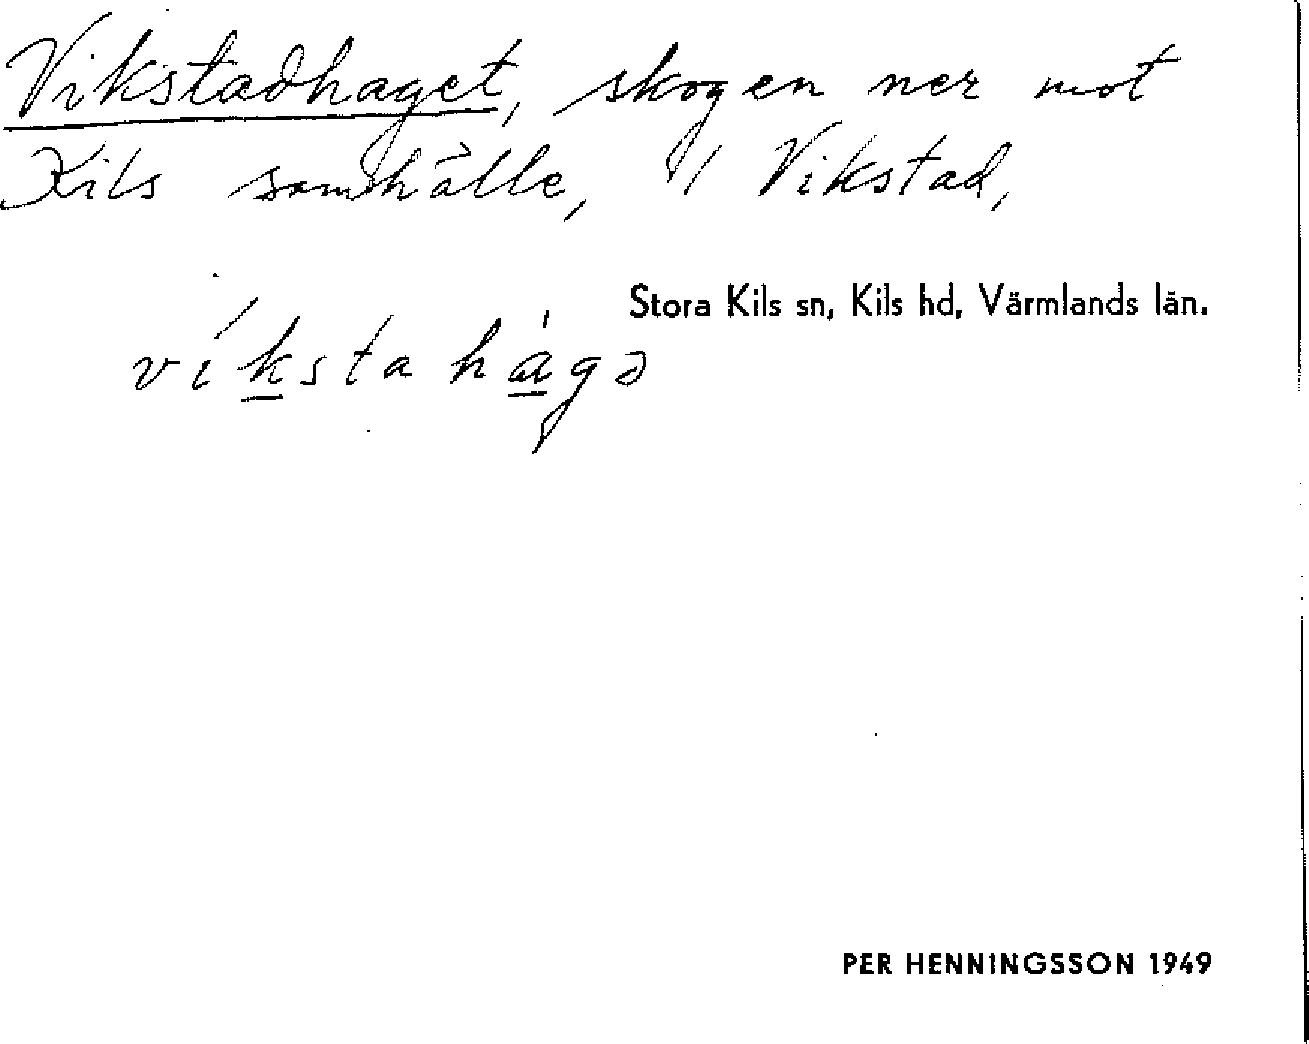 Vikstadhaget, skogen ner mot
Kils samhälle, / Vikstad,
Stora Kils sn, Kils hd, Värmlands län.
víksta hágə
PER HENNINGSSON 1949